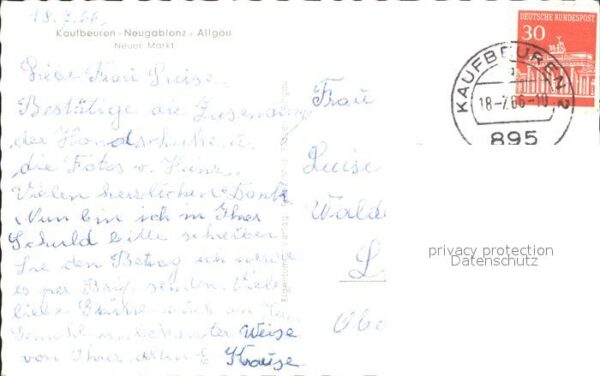 18.7.66.
Kaufbeuren - Neugablonz, Allgäu
Neuer Markt
Liebe Frau Luise.
Bestätige die Zusendung
der Handschuhe u.
die Fotos v. Heinz.
Vielen herzlichen Dank
Nun bin ich in Ihrer
Schuld bitte schreiben
Sie den Betrag ich werde
es per Brief senden. Viele
liebe Grüsse auch an Herrn
Gemahl unbekannter Weise
von Ihrer alten E Krause.
Eigentum u. Verlag
Frau
Luise
Walde
L
Obe
DEUTSCHE BUNDESPOST
30
KAUFBEUREN 2
18-7.66-10
895
privacy protection
Datenschutz